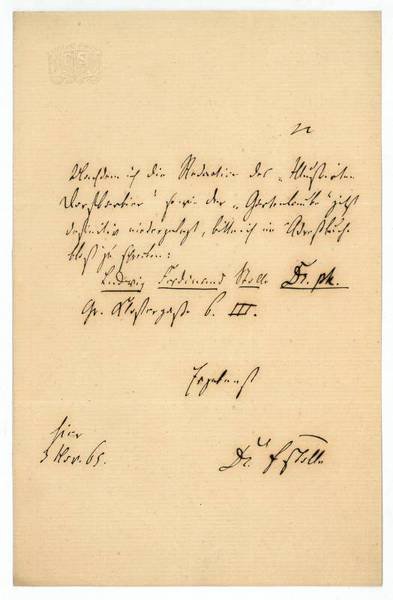 Nachdem ich die Redaction des „Illustrirten
Dorfbarbier“ sowie der „Gartenlaube“ jetzt
definitiv niedergelegt, bitte ich im Adreßbuche
bloß zu
Ludwig Ferdinand Stolle Dr. ph.
Gr. Klostergasse 6. III.
Ergebenst
hier
3 Nov. 65.
Dr. F Stolle